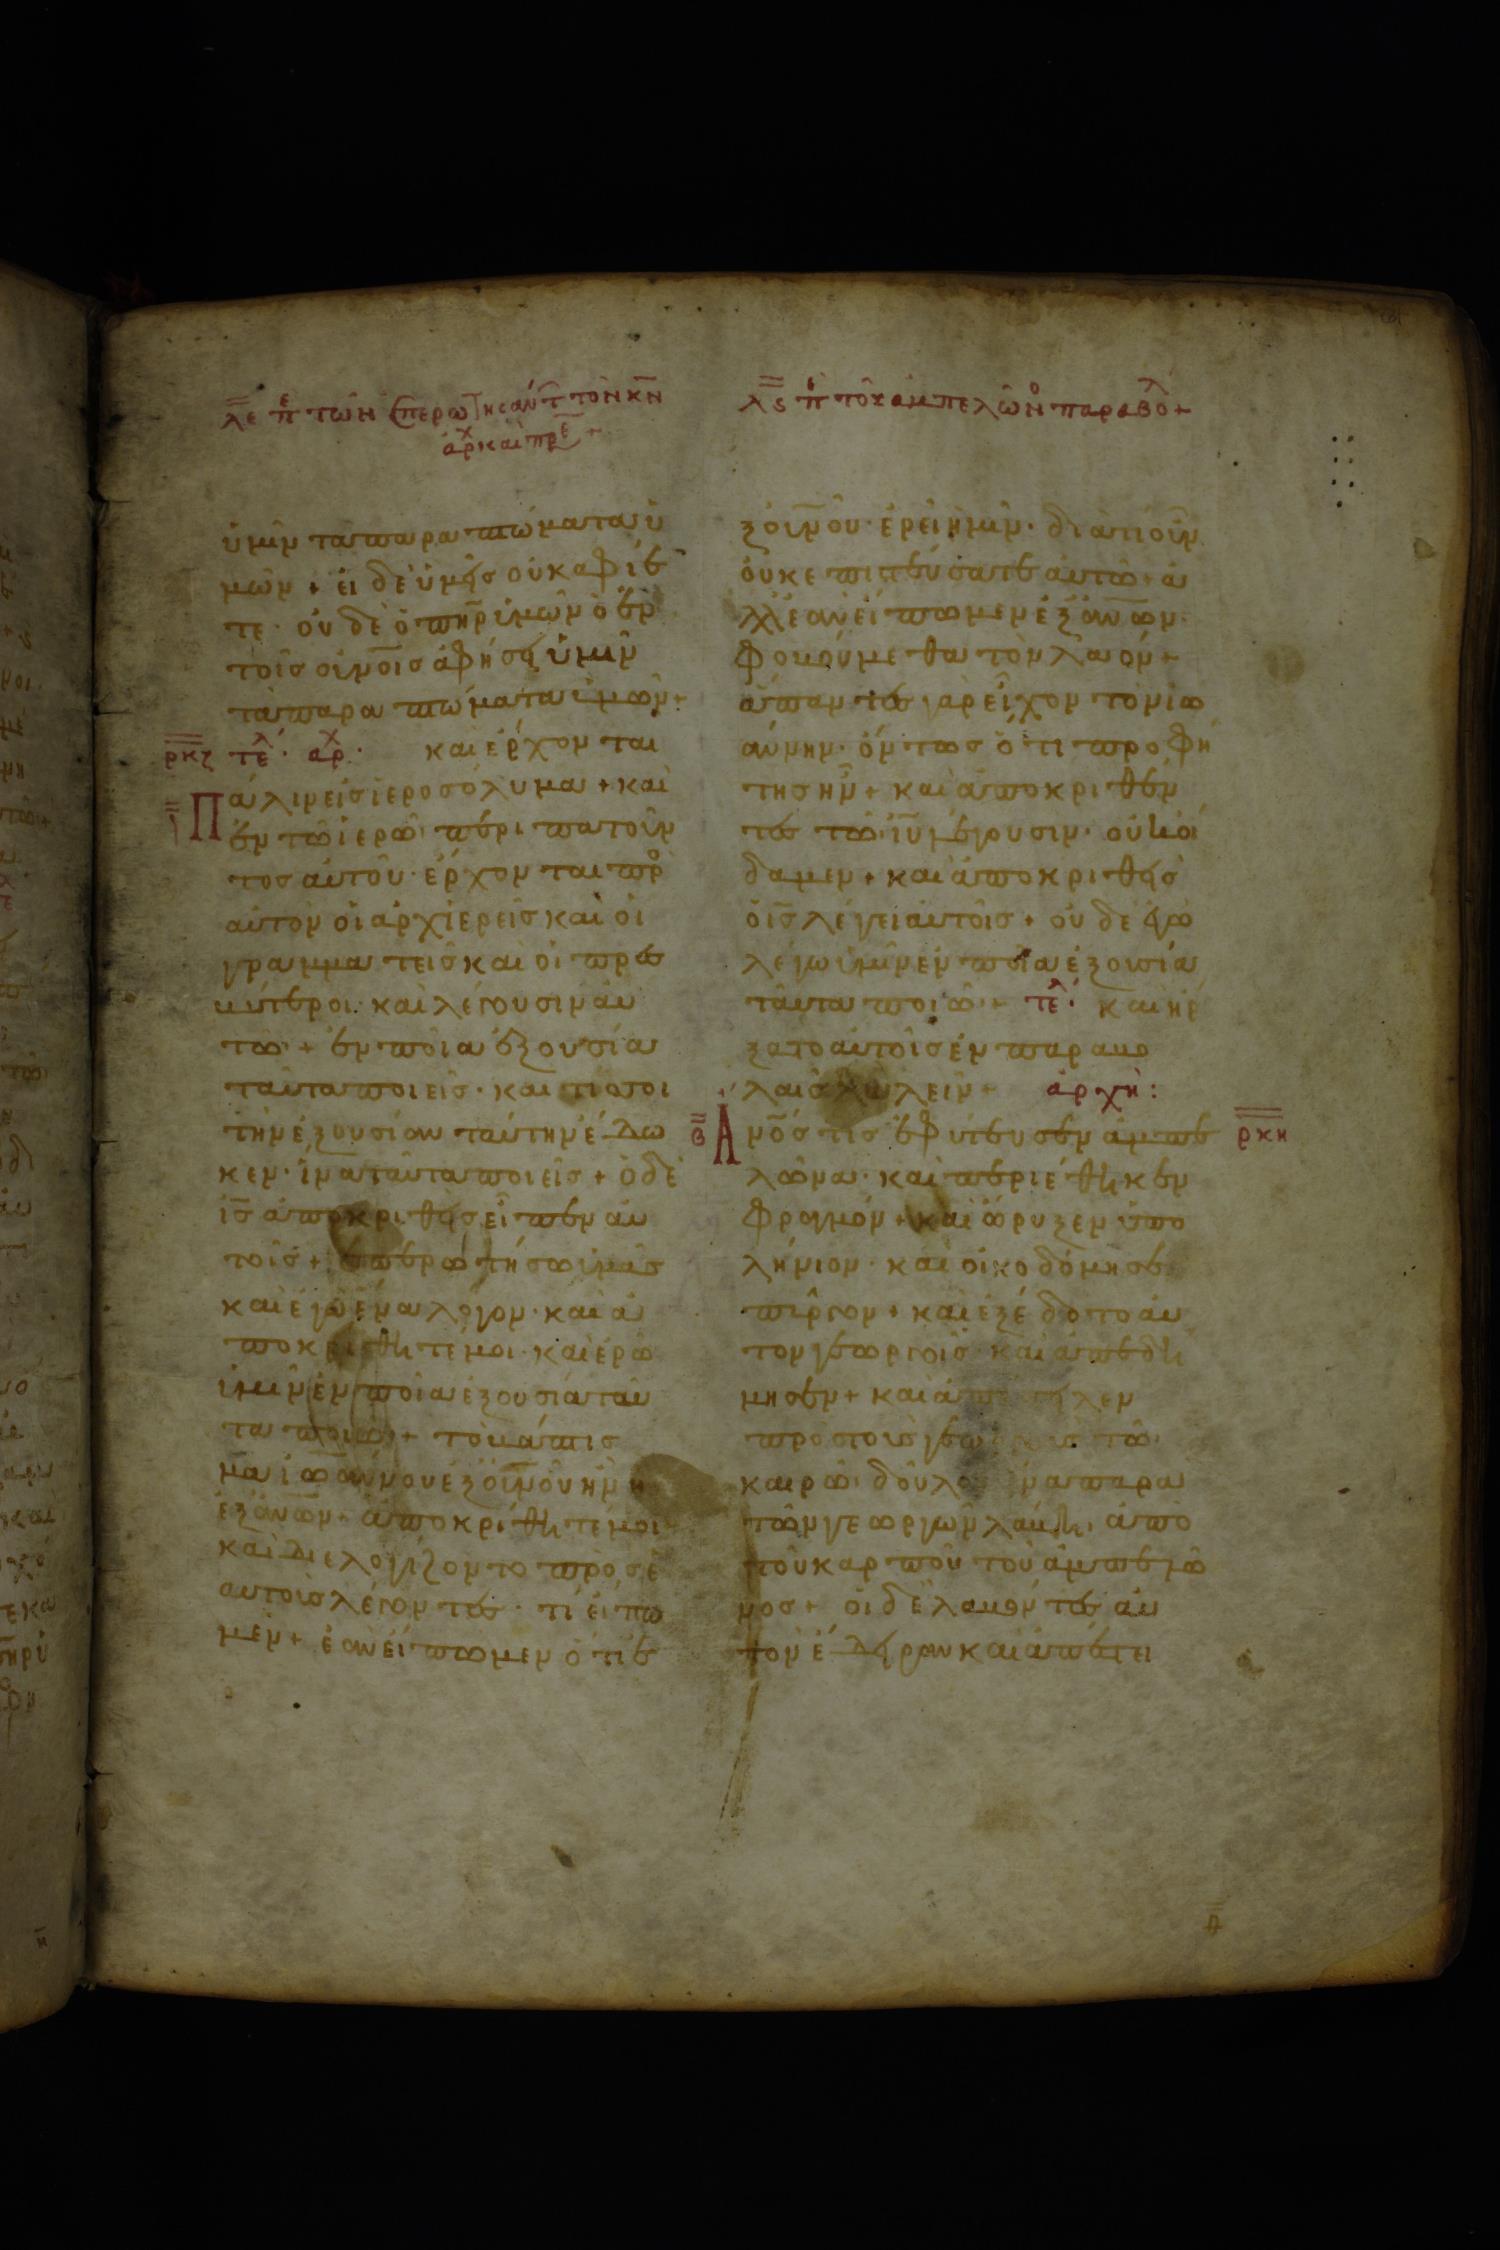 λε π̅ τῶν ἐπερωτησάντ τὸν κ̅ν̅
ἀρχ καὶ πρε +
ὑμῖν τὰ παραπτώματα ὑ
μῶν + εἰ δὲ ὑμεῖς οὐκ ἀφίε
τε · οὐδὲ ὁ π̅η̅ρ̅ ὑμῶν ὁ ἐν
τοῖς οὐ̅νο̅ις ἀφήσει ὑμῖν
τὰ παραπτώματα ὑμῶν +
ρκζ τελ · αρχ · καὶ ἔρχονται
Πάλιν εἰς ἱεροσόλυμα + καὶ
ἐν τῶ ἱερῶ περιπατοῦν
τος αὐτοῦ · ἔρχονται προ
αὐτὸν οἱ ἀρχιερεῖς καὶ οἱ
γραμματεῖς καὶ οἱ πρεσ
βύτεροι · καὶ λέγουσιν αὐ
τῶ + ἐν ποία ἐξουσία
ταῦτα ποιεῖς · καὶ τίς σοι
τὴν ἐξουσίαν ταύτην ἔδω
κεν · ἵνα ταῦτα ποιεῖς + ὁ δὲ
ι̅ς̅ ἀποκριθεὶς εἶπεν αὐ
τοῖς + ἐπερωτήσω ὑμᾶς
καὶ ἐγὼ ἕνα λόγον · καὶ ἀ
ποκρίθητέ μοι · καὶ ἐρῶ
ὑμῖν ἐν ποία ἐξουσία ταῦ
τα ποιῶ + τὸ βάπτισ
μα ἰω̅άννου ἐξ οὐ̅νο̅ῦ ἦν ἢ
ἐξ ἀ̅ν̅ω̅ν + ἀποκρίθητέ μοι +
καὶ διελογίζοντο πρὸς ἑ
αυτοὺς λέγοντες · τί εἴπω
μεν + ἐὰν εἴπωμεν ὅτι ἐ
λϛ π̅ τοῦ ἀμπελῶνο παραβολ +
ξ οὐ̅νο̅ῦ · ἐρεῖ ἡμῖν · διατί οὖν
οὐκ ἐπιστεύσατε αὐτῶ + ἀ
λλ' ἐὰν εἴπωμεν ἐξ ἀ̅ν̅ω̅ν ·
φοβούμεθα τὸν λαόν +
ἅπαντες γὰρ εἶχον τὸν ἰω
άννην · ὄντως ὅτι προφή
της ἦν + καὶ ἀποκριθέν
τες τῶ ι̅υ̅ λέγουσιν · οὐκ οἴ
δαμεν + καὶ ἀποκριθεὶς
ὁ ι̅ς̅ λέγει αὐτοῖς + οὐδὲ ἐγὼ
λέγω ὑμῖν ἐν ποία ἐξουσία
ταῦτα ποιῶ + τελ · καὶ ἤρ
ξατο αὐτοῖς ἐν παραβο
λαῖς λαλεῖν + ἀρχὴ :
Ἄ̅ν̅ο̅ς τις ἐφύτευσεν ἀμπε ρκη
λῶνα · καὶ περιέθηκεν
φραγμόν + καὶ ὤρυξεν ὑπο
λήνιον · καὶ οἰκοδόμησε
πύργον + καὶ ἐξέδοτο αὐ
τὸν γεωργοῖς · καὶ ἀπεδή
μησεν + καὶ ἀπέστειλεν
πρὸς τοὺς γεωργοὺς τῶ
καιρῶ · δοῦλον ἵνα παρα
τῶν γεωργῶν λάβη · ἀπὸ
τοῦ καρποῦ τοῦ ἀμπελῶ
νος + οἱ δὲ λαβόντες αὐ
τὸν ἔδειραν καὶ ἀπέστει